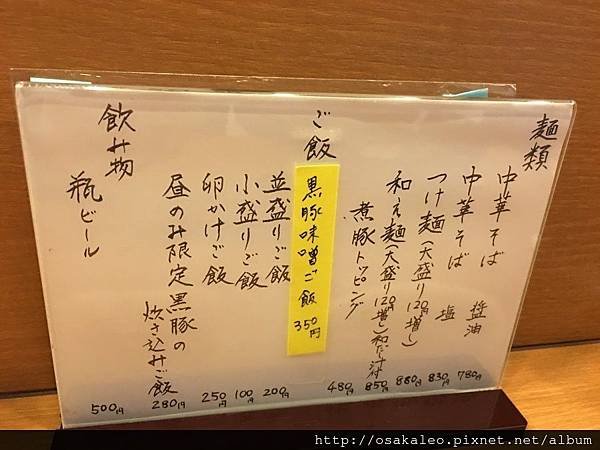 麺類
中華そば 醤油 780円
中華そば 塩 830円
つけ麺(大盛り120円増し) 880円
和え麺(大盛り120円増し)和だし付 850円
煮豚トッピング 480円
ご飯
黒豚味噌ご飯 350円
並盛りご飯 200円
小盛りご飯 100円
卵かけご飯 250円
昼のみ限定 黒豚の
炊き込みご飯 280円
飲み物
瓶ビール 500円
http://osakaleo.pixnet.net/album